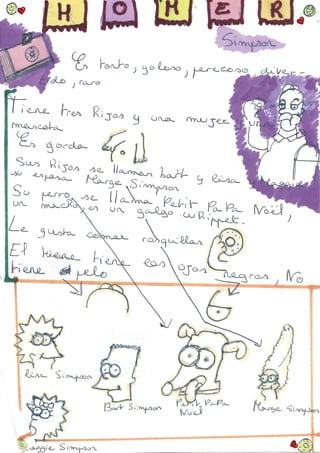 HOMER
Simpson
Es tonto, goloso, perezoso, diver-
tido, raro
Tiene tres Rijos y una mujer y una
mascota
Es gorda
Sus Rijos se llaman bart y lisa
su esposa Marge Simpson
Su perro se llama Petit PaPa Noël,
un macho, es un galgo whippet.
Le gusta comer rasquillas
El tiene los ojos negros, No
tiene pelo
lisa Simpson
Bart Simpson
Petit PaPa
Noël
Marge Simpson
Maggie Simpson